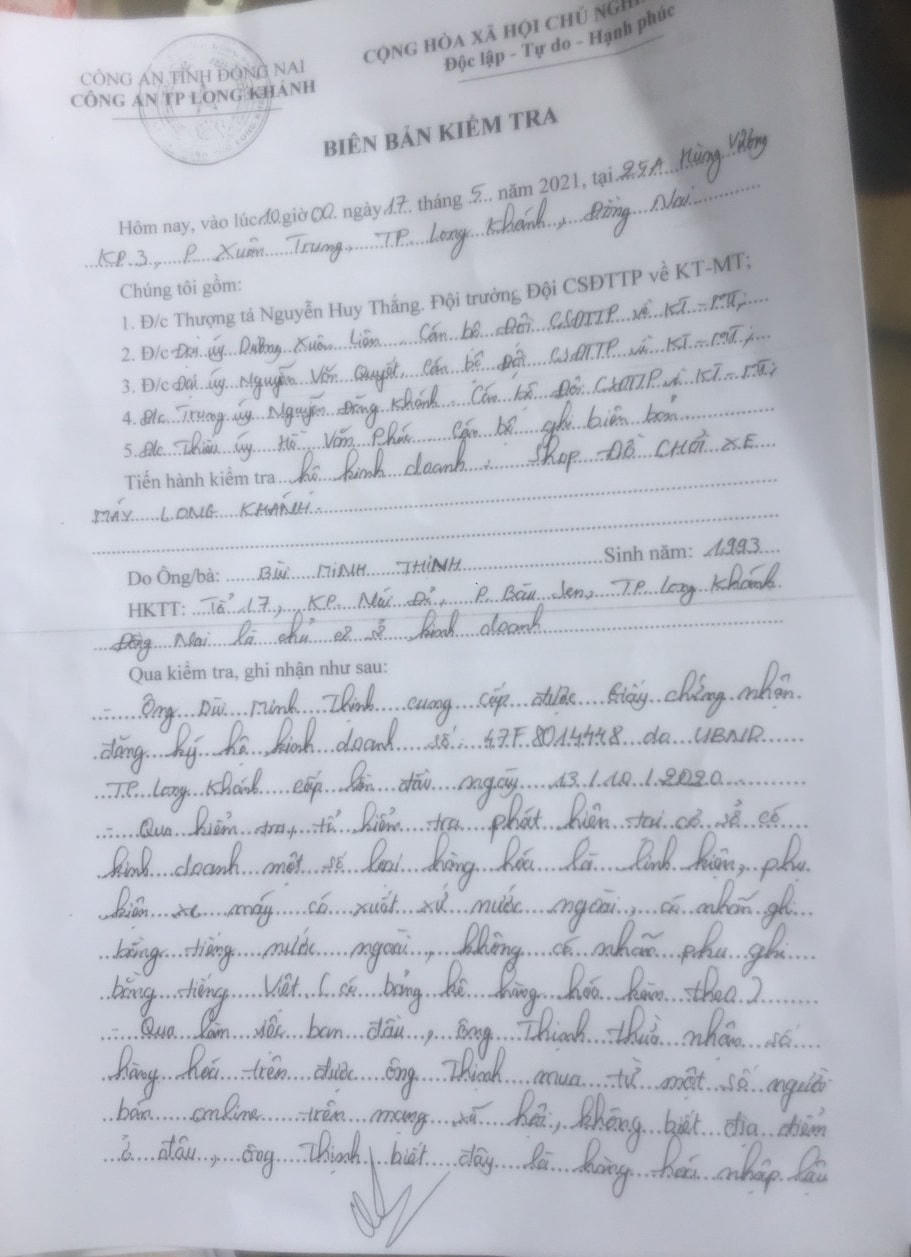 CÔNG AN TỈNH ĐỒNG NAI
CÔNG AN TP LONG KHÁNH
CỘNG HÒA XÃ HỘI CHỦ NGHĨ
Độc lập - Tự do - Hạnh phúc
BIÊN BẢN KIỂM TRA
Hôm nay, vào lúc 10 giờ 00 ngày 17 tháng 5 năm 2021, tại 25A Hùng Vương
KP.3, P Xuân Trung, TP Long Khánh, Đồng Nai
Chúng tôi gồm:
1. Đ/c Thượng tá Nguyễn Huy Thắng. Đội trưởng Đội CSĐTTP về KT-MT;
2. Đ/c Đại úy Dương Xuân Liên. Cán bộ Đội CSĐTTP về KT-MT;
3. Đ/c Đại úy Nguyễn Văn Quyết, Cán bộ Đội CSĐTTP về KT-MT;
4. Đ/c Trung úy Nguyễn Đăng Khánh. Cán bộ Đội CSĐTTP về KT-MT;
5. Đ/c Thiếu úy Hồ Văn Phúc Cán bộ ghi biên bản
Tiến hành kiểm tra hộ kinh doanh: Shop ĐỒ CHƠI XE
MÁY LONG KHÁNH.
Do Ông/bà: BÙI MINH THỊNH Sinh năm: 1993
HKTT: Tổ 17, KP. Núi Đỏ, P. Bàu Sen, TP Long Khánh
Đồng Nai là chủ cơ sở kinh doanh
Qua kiểm tra, ghi nhận như sau:
- Ông Bùi Minh Thịnh cung cấp được Giấy chứng nhận
đăng ký hộ kinh doanh số: 47F8014448 do UBND
TP Long Khánh cấp lần đầu ngày 13/10/2020
- Qua kiểm tra, tổ kiểm tra phát hiện tại cơ sở có
kinh doanh một số loại hàng hóa là linh kiện, phụ
kiện xe máy có xuất xứ nước ngoài, có nhãn ghi
bằng tiếng nước ngoài, không có nhãn phụ ghi
bằng tiếng Việt (có bảng kê hàng hóa kèm theo)
- Qua làm việc ban đầu, ông Thịnh thừa nhận số
hàng hóa trên được ông Thịnh mua từ một số người
bán online trên mạng xã hội, không biết địa điểm
ở đâu, ông Thịnh biết đây là hàng hóa nhập lậu